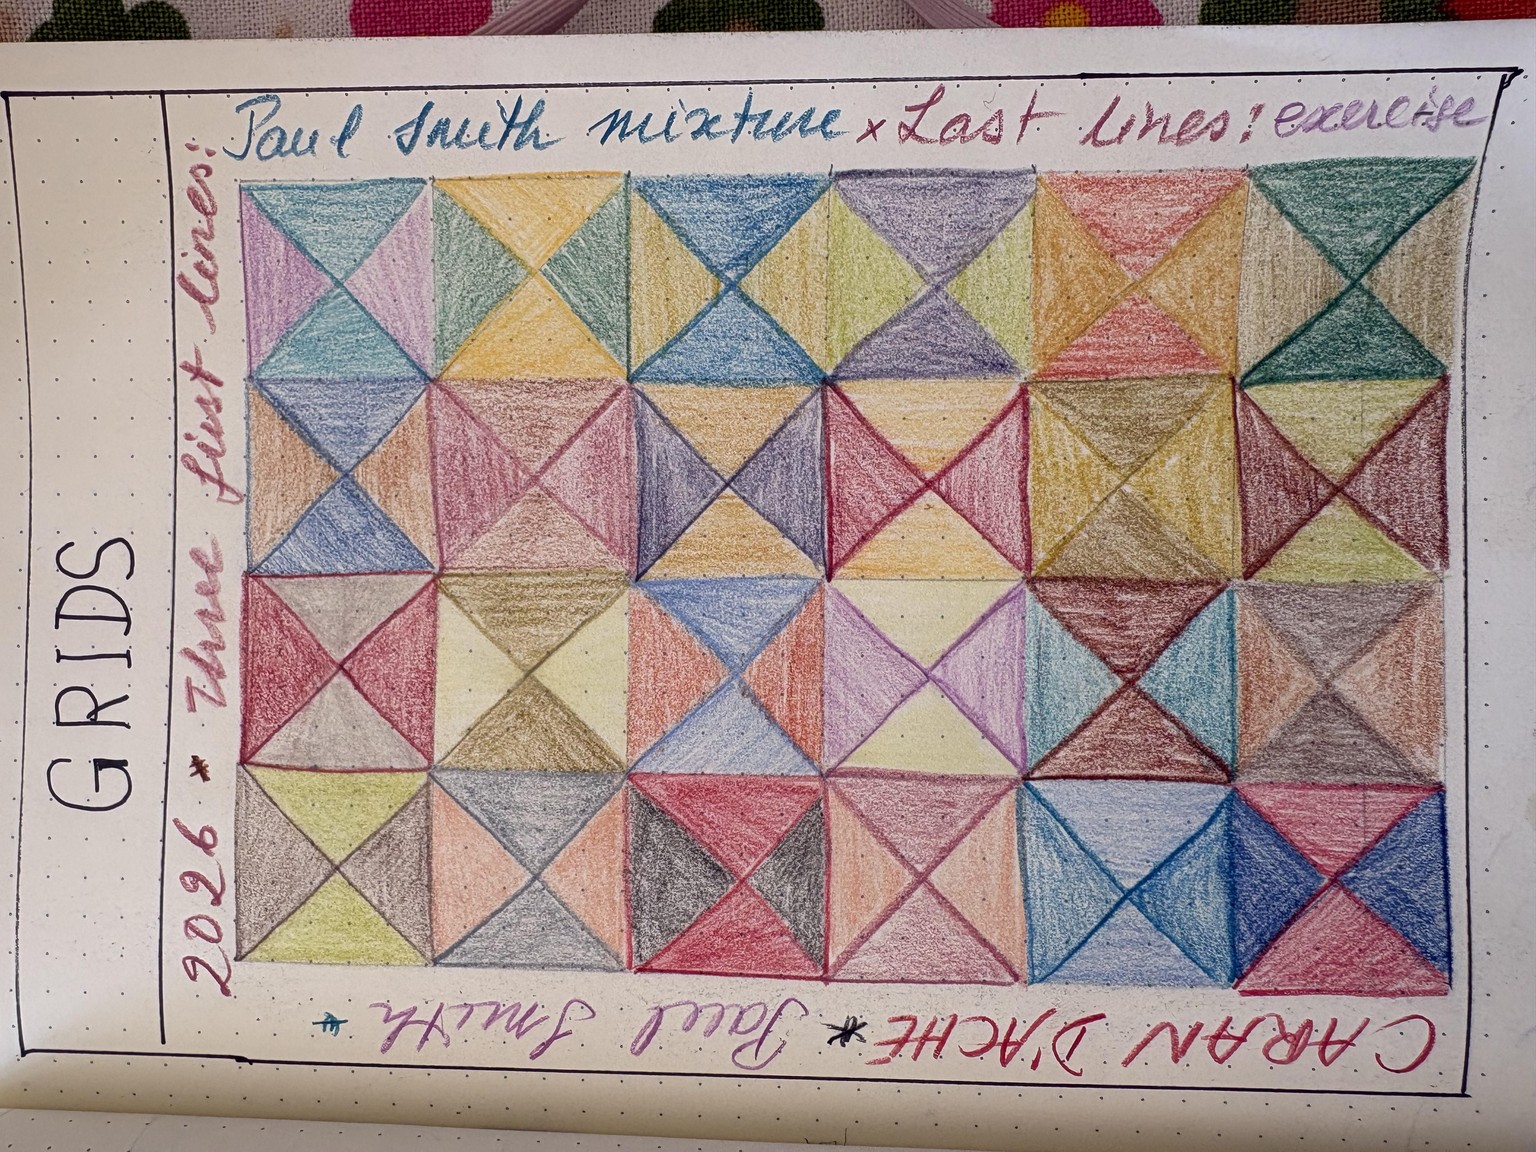 Paul Smith mixture x Last lines: exercise
GRIDS
2026 * Three first lines:
CARAN D'ACHE * Paul Smith *